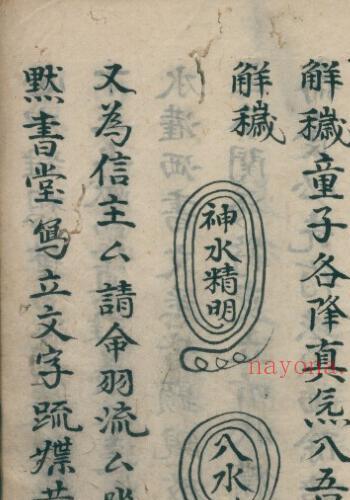 解穢童子各降真炁八
解穢
神水精明
八水
又為信主厶請命羽流厶
默書堂寫立文字疏牒
nayona